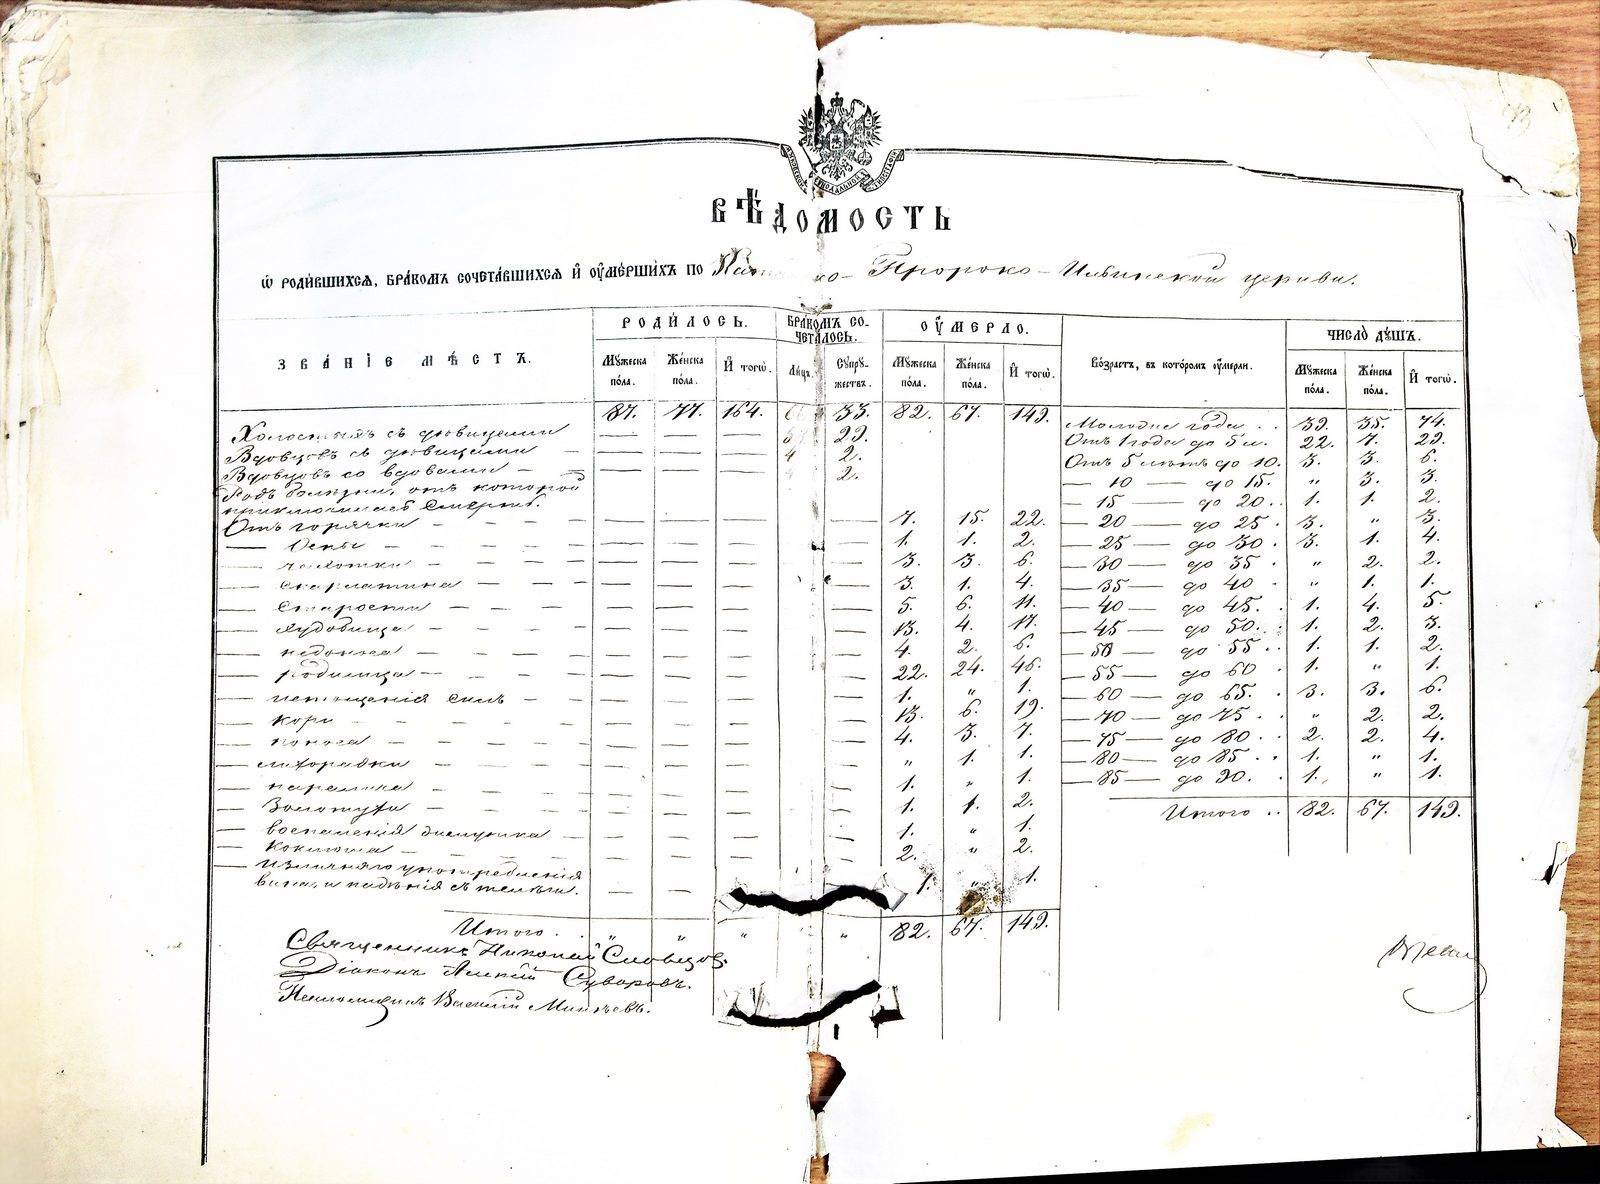 ВѢДОМОСТЬ
Ѡ РОДИ́ВШИХСЯ, БРА́КОМЪ СОЧЕТА́ВШИХСЯ И҆ ОУ҆МЕ́РШИХЪ ПО Пророко-Ильинской церкви.
ЗВА́НІЕ МѢ́СТЪ. РОДИ́ЛОСЬ. БРА́КОМЪ СО-ЧЕТА́ЛОСЬ. ОУ҆́МЕРЛО. Во́зрастъ, въ кото́ромъ оу҆́мерли. ЧИСЛО̀ ДꙊ́ШЪ.
Мꙋ́жеска по́ла. Же́нска по́ла. И҆ тогѡ̀. Ли́цъ. Сꙋпрꙋ́жествъ. Мꙋ́жеска по́ла. Же́нска по́ла. И҆ тогѡ̀. Мꙋ́жеска по́ла. Же́нска по́ла. И҆ тогѡ̀.
87. 77. 164. 33. 82. 67. 149. Моложе года . . 39. 35. 74.
Холостыхъ съ дѣвицами — — — 29. Отъ 1 года до 5 л. 22. 7. 29.
Вдовцовъ съ дѣвицами — — — — 4 2. Отъ 5 лѣтъ до 10. 3. 3. 6.
Вдовцовъ со вдовами — — — — 4 2. — 10 — до 15. „ 3. 3.
Родъ болѣзни, отъ которой
приключилась смерть. — 15 — до 20 . . 1. 1. 2.
Отъ горячки — — — — — — — — 7. 15. 22. — 20 — до 25 . 3. „ 3.
— Оспы — — — — — — — — 1. 1. 2. — 25 — до 30 . 3. 1. 4.
— чахотки — — — — — — — 3. 3. 6. — 30 — до 35 . „ 2. 2.
— скарлатина — — — — — — — 3. 1. 4. — 35 — до 40 . „ 1. 1.
— старости — — — — — — — — 5. 6. 11. — 40 — до 45. . 1. 4. 5.
— худобища — — — — — — — — 13. 4. 17. — 45 — до 50 . . 1. 2. 3.
— недоноса — — — — — — — — 4. 2. 6. — 50 — до 55 . . 1. 1. 2.
— родимца — — — — — — — — 22. 24. 46. — 55 — до 60 . 1. „ 1.
— истощенія силъ — — — — — — 1. „ 1. — 60 — до 65. . 3. 3. 6.
— кори — — — — — — — — 13. 6. 19. — 70 — до 75 . . „ 2. 2.
— поноса — — — — — — — — 4. 3. 7. — 75 — до 80 . . 2. 2. 4.
— лихорадки — — — — — — — „ 1. 1. — 80 — до 85 . . 1. „ 1.
— паралича — — — — — — — 1. „ 1. — 85 — до 90. . 1. „ 1.
— Золотухи — — — — — — — 1. 1. 2. Итого . . 82. 67. 149.
— воспаленія — — — — — 1. „ 1.
— коклюша — — — — — — — 2. „ 2.
— излишняго употребленія
вина, и паденія съ телѣги. — — 1. „ 1.
Итого . „ „ „ „ 82. 67. 149.
Священникъ Николай Словцовъ.
Діаконъ Алексій Суворовъ.
Псаломщикъ Василій